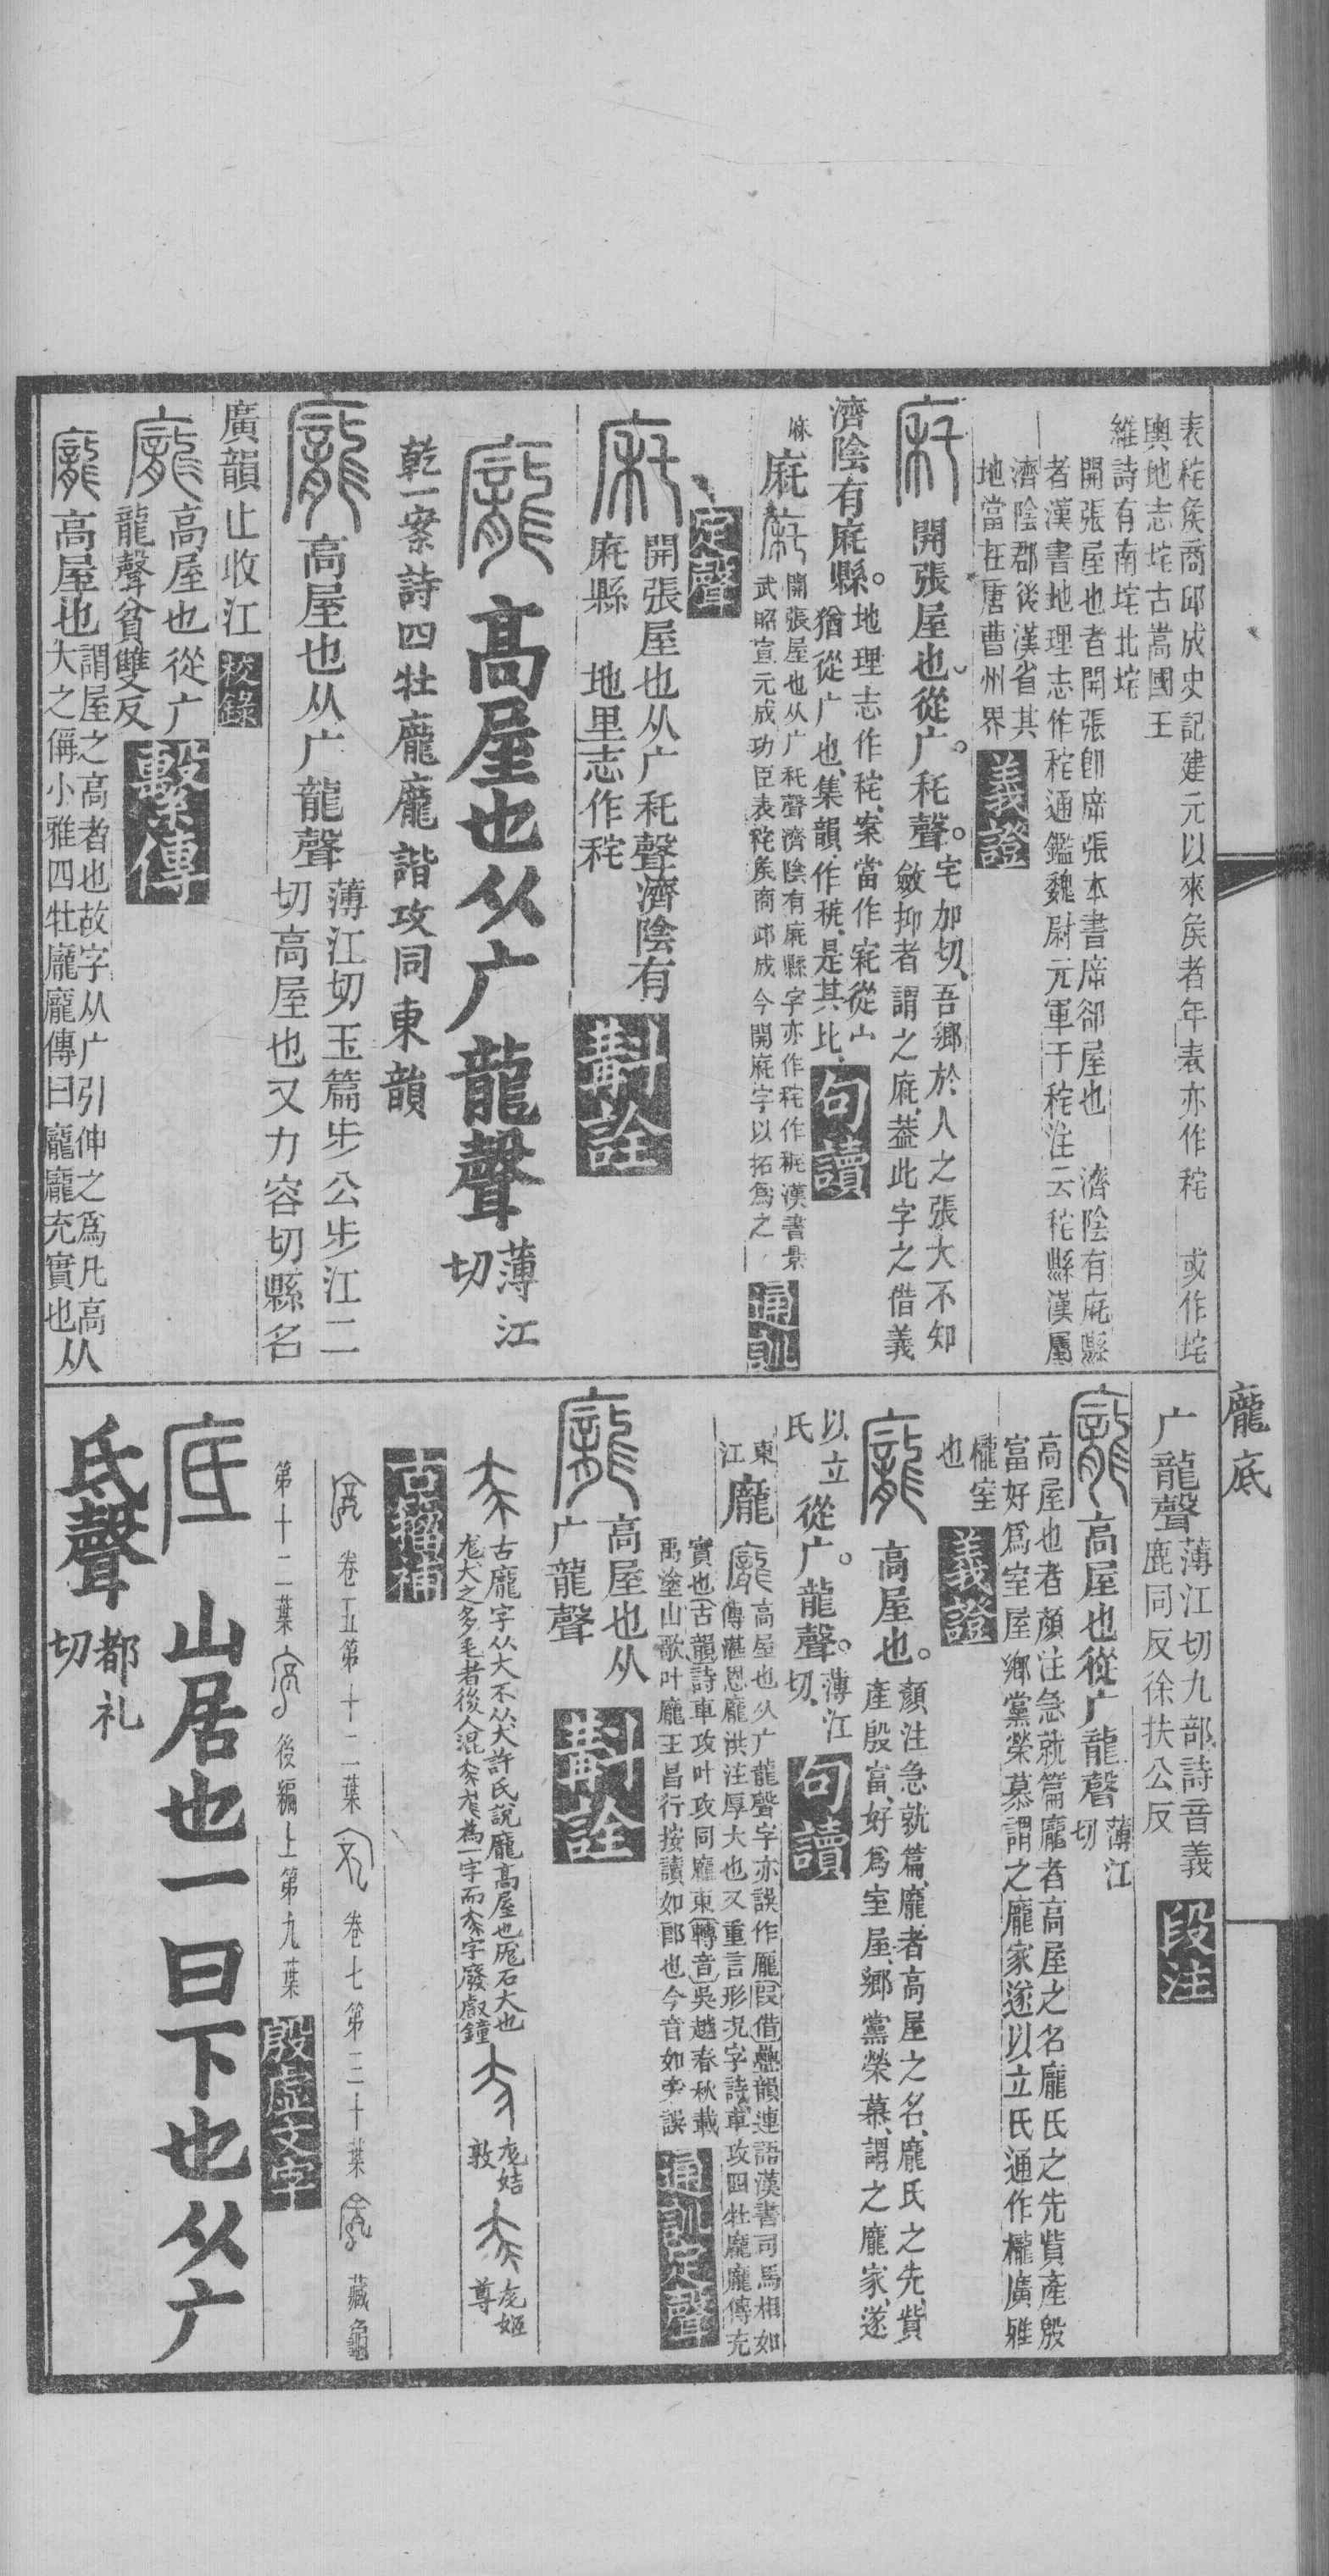 表秺矦商邱成史記建元以來矦者年表亦作秺　或作垞
輿地志垞古嵩國王
維詩有南垞北垞
開張屋也者開張卽㡿張本書㡿郤屋也　濟陰有庑縣
者漢書地理志作秺通鑑魏尉元軍于秺注云秺縣漢屬
濟陰郡後漢省其
地當在唐曹州界
義證
開張屋也從广秅聲宅加切吾鄉於人之張大不知
斂抑者謂之庑葢此字之借義
濟陰有庑縣地理志作秺案當作𡧪從宀
猶從广也集韻作䅊是其比
句讀
麻
庑
開張屋也从广秅聲濟陰有庑縣字亦作秺作䅊漢書景
武昭宣元成功臣表秺矦商邱成今開庑字以拓爲之
通訓
定聲
開張屋也从广秅聲濟陰有
庑縣　地里志作秺
斠詮
高屋也从广龍聲薄江
切
乾一案詩四牡龐龐諧攻同東韻
高屋也从广龍聲薄江切玉篇步公步江二
切高屋也又力容切縣名
廣韻止收江
校錄
高屋也從广
龍聲貧雙反
繫傳
高屋也謂屋之高者也故字从广引伸之爲凡高
大之偁小雅四牡龐龐傳曰龐龐充實也从
龐底
广龍聲薄江切九部詩音義
鹿同反徐扶公反
段注
高屋也從广龍聲薄江
切
高屋也者顏注急就篇龐者高屋之名龐氏之先貲產殷
富好爲室屋鄉黨榮慕謂之龐家遂以立氏通作櫳廣雅
櫳室
也
義證
高屋也顏注急就篇龐者高屋之名龐氏之先貲
產殷富好爲室屋鄉黨榮慕謂之龐家遂
以立
氏
從广龍聲薄江
切
句讀
東
江
龐
高屋也从广龍聲字亦誤作龎叚借疊韻連語漢書司馬相如
傳湛恩龐洪注厚大也又重言形況字詩車攻四牡龐龐傳充
實也古韻詩車攻叶攻同龐東轉音吳越春秋載
禹塗山歌叶龐王昌行按讀如郎也今音如旁誤
通訓定聲
高屋也从
广龍聲
斠詮
古龐字从大不从犬許氏說龐高屋也厖石大也
尨犬之多毛者後人混爲一字而字廢𣪘鐘
尨姞
敦
尨姬
尊
古籀補
卷五第十二葉
卷七第三十葉
藏龜
第十二葉
後編上第九葉
殷虛文字
底
山居也一曰下也从广
氐聲都礼
切